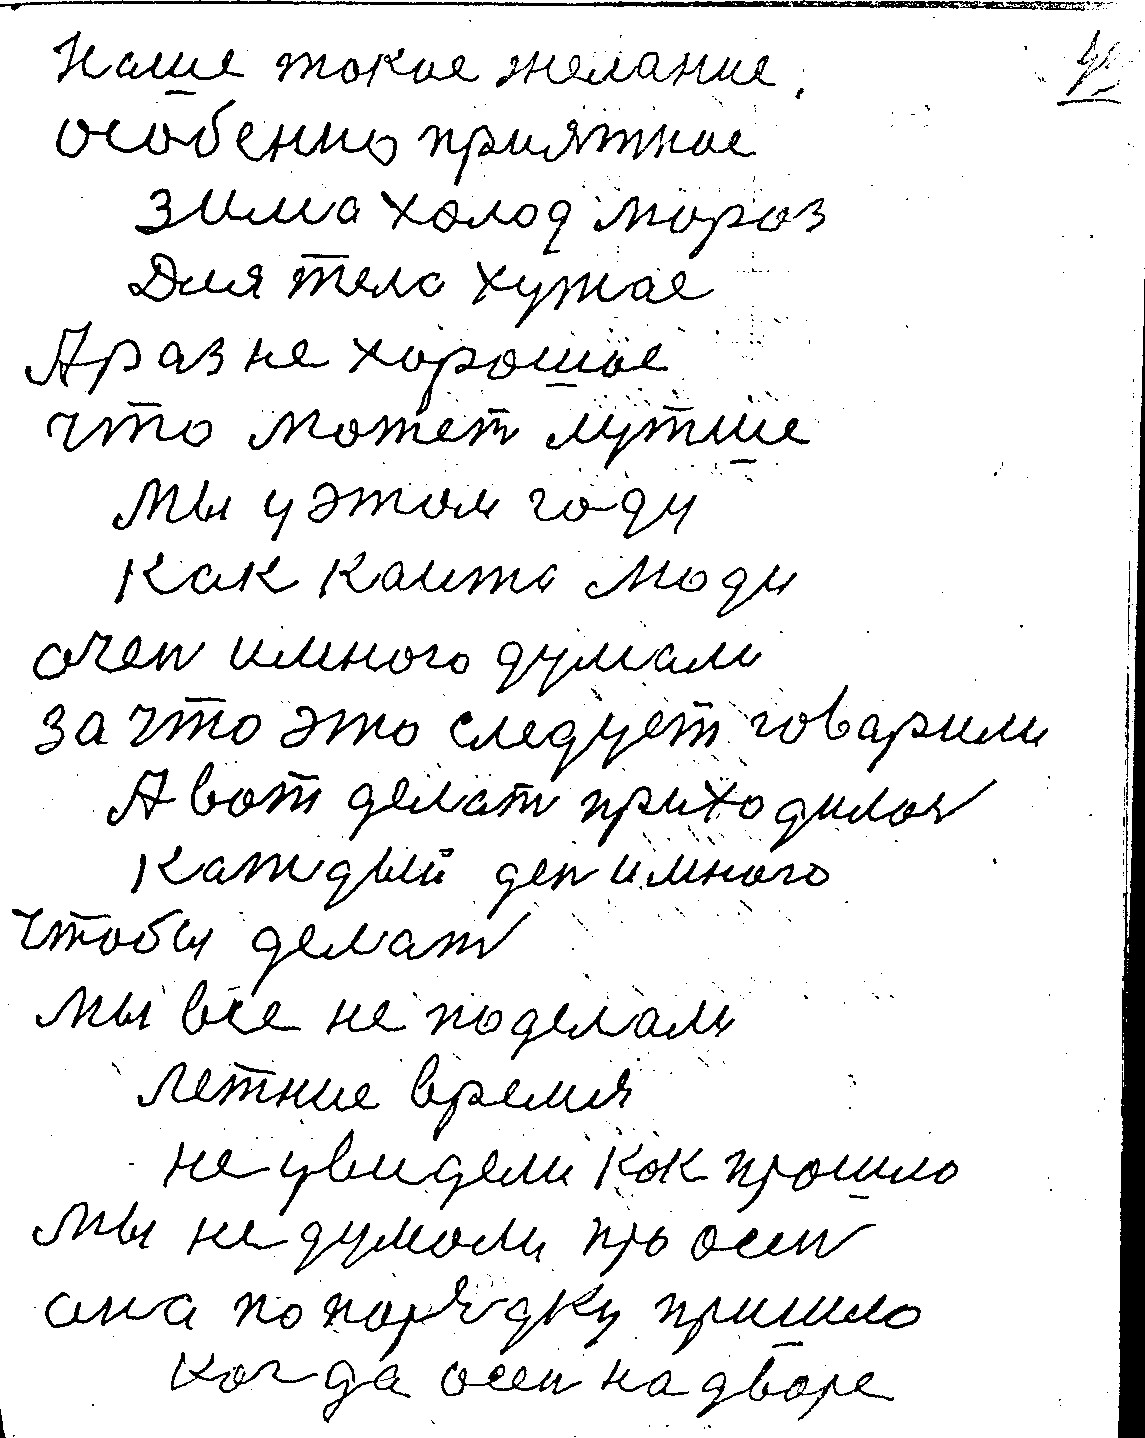 Наше токае желание.
особенно приятное
зима холод мороз
Для тела хужае
А раз не хорошое
что может лутше
мы у этом году
как каито люди
очен имного думали
за что это следует говарили
А вот делат приходилос
каждый ден имного
чтобы делат
мы все не поделали
летние время
не увидели как прошло
мы не думоли про осен
она по порядку пришло
когда осен на дворе